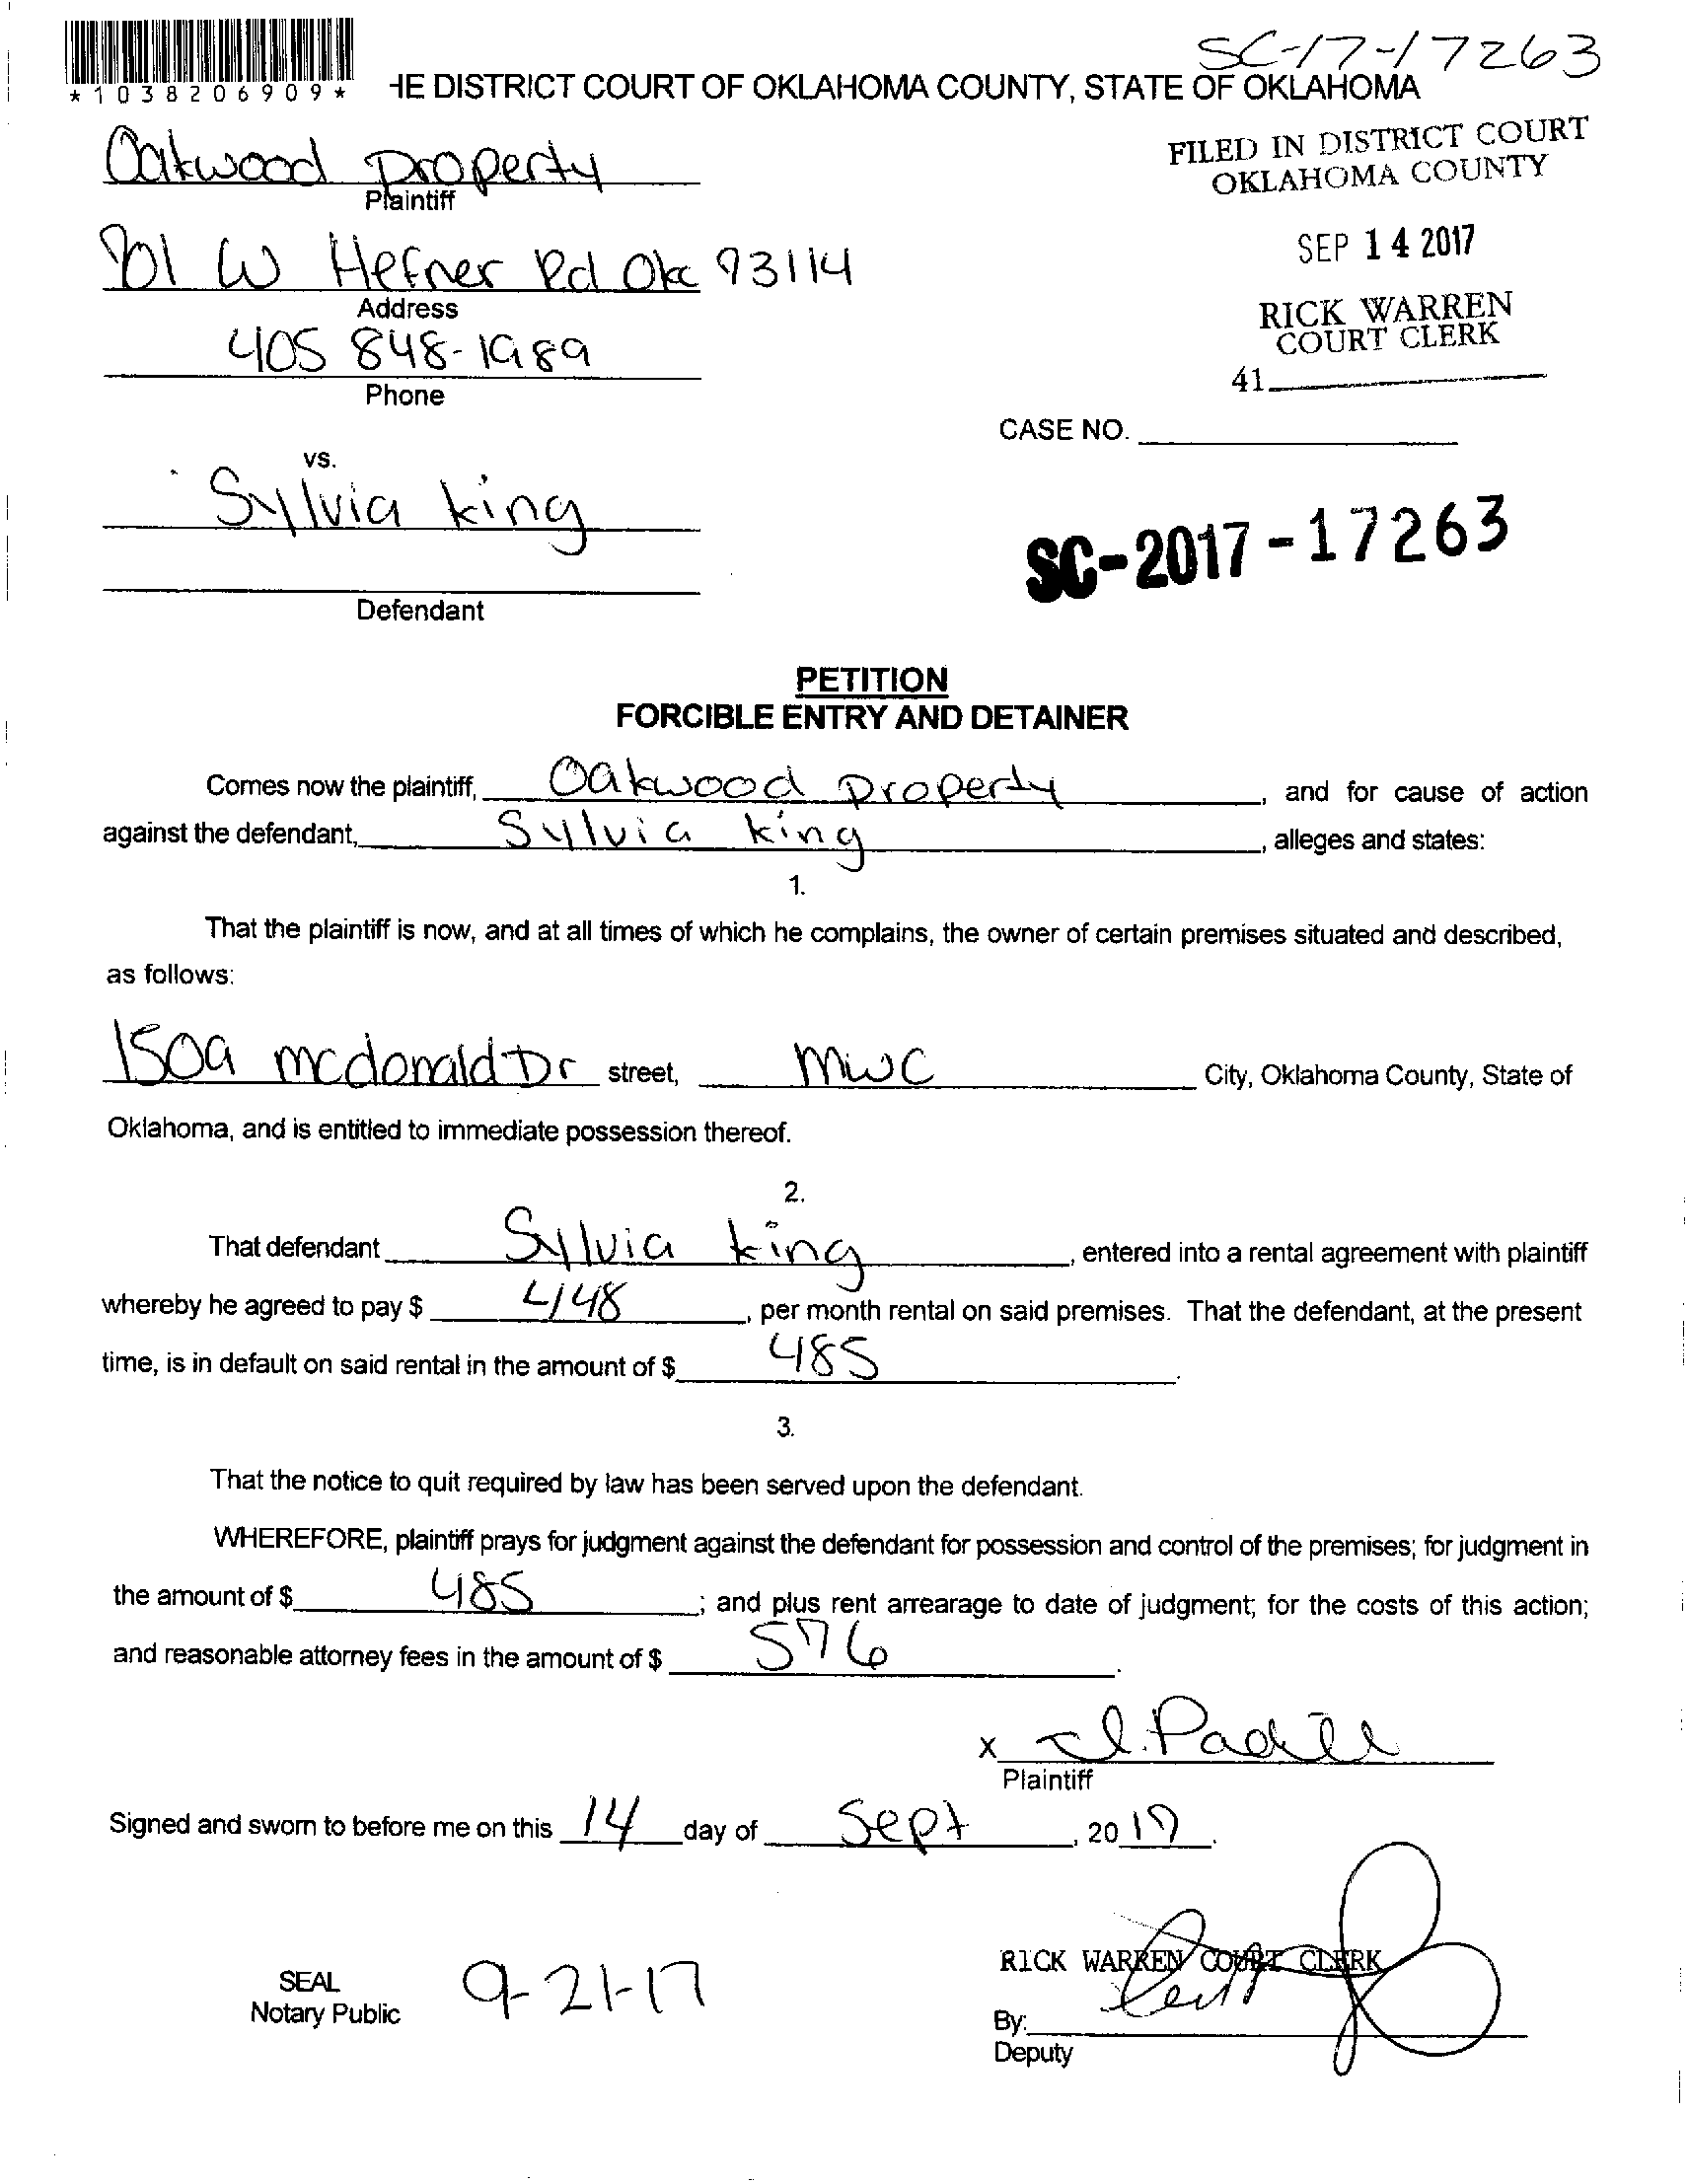 SC-17-17263
*1038206909*
HE DISTRICT COURT OF OKLAHOMA COUNTY, STATE OF OKLAHOMA
Oakwood Property
Plaintiff
FILED IN DISTRICT COURT
OKLAHOMA COUNTY
SEP 14 2017
RICK WARREN
COURT CLERK
41
801 W Hefner Rd Okc 73114
Address
405 848-1989
Phone
CASE NO.
vs.
Sylvia king
Defendant
SC-2017-17263
PETITION
FORCIBLE ENTRY AND DETAINER
Comes now the plaintiff, Oakwood Property, and for cause of action
against the defendant, Sylvia king, alleges and states:
1.
That the plaintiff is now, and at all times of which he complains, the owner of certain premises situated and described,
as follows:
1509 mcdonald Dr street, MWC City, Oklahoma County, State of
Oklahoma, and is entitled to immediate possession thereof.
2.
That defendant Sylvia king, entered into a rental agreement with plaintiff
whereby he agreed to pay $ 448, per month rental on said premises. That the defendant, at the present
time, is in default on said rental in the amount of $ 485.
3.
That the notice to quit required by law has been served upon the defendant.
WHEREFORE, plaintiff prays for judgment against the defendant for possession and control of the premises; for judgment in
the amount of $ 485; and plus rent arrearage to date of judgment; for the costs of this action;
and reasonable attorney fees in the amount of $ 576.
x
Plaintiff
Signed and sworn to before me on this 14 day of Sept, 2017.
RICK WARREN COURT CLERK
SEAL
Notary Public
9-21-17
By:
Deputy